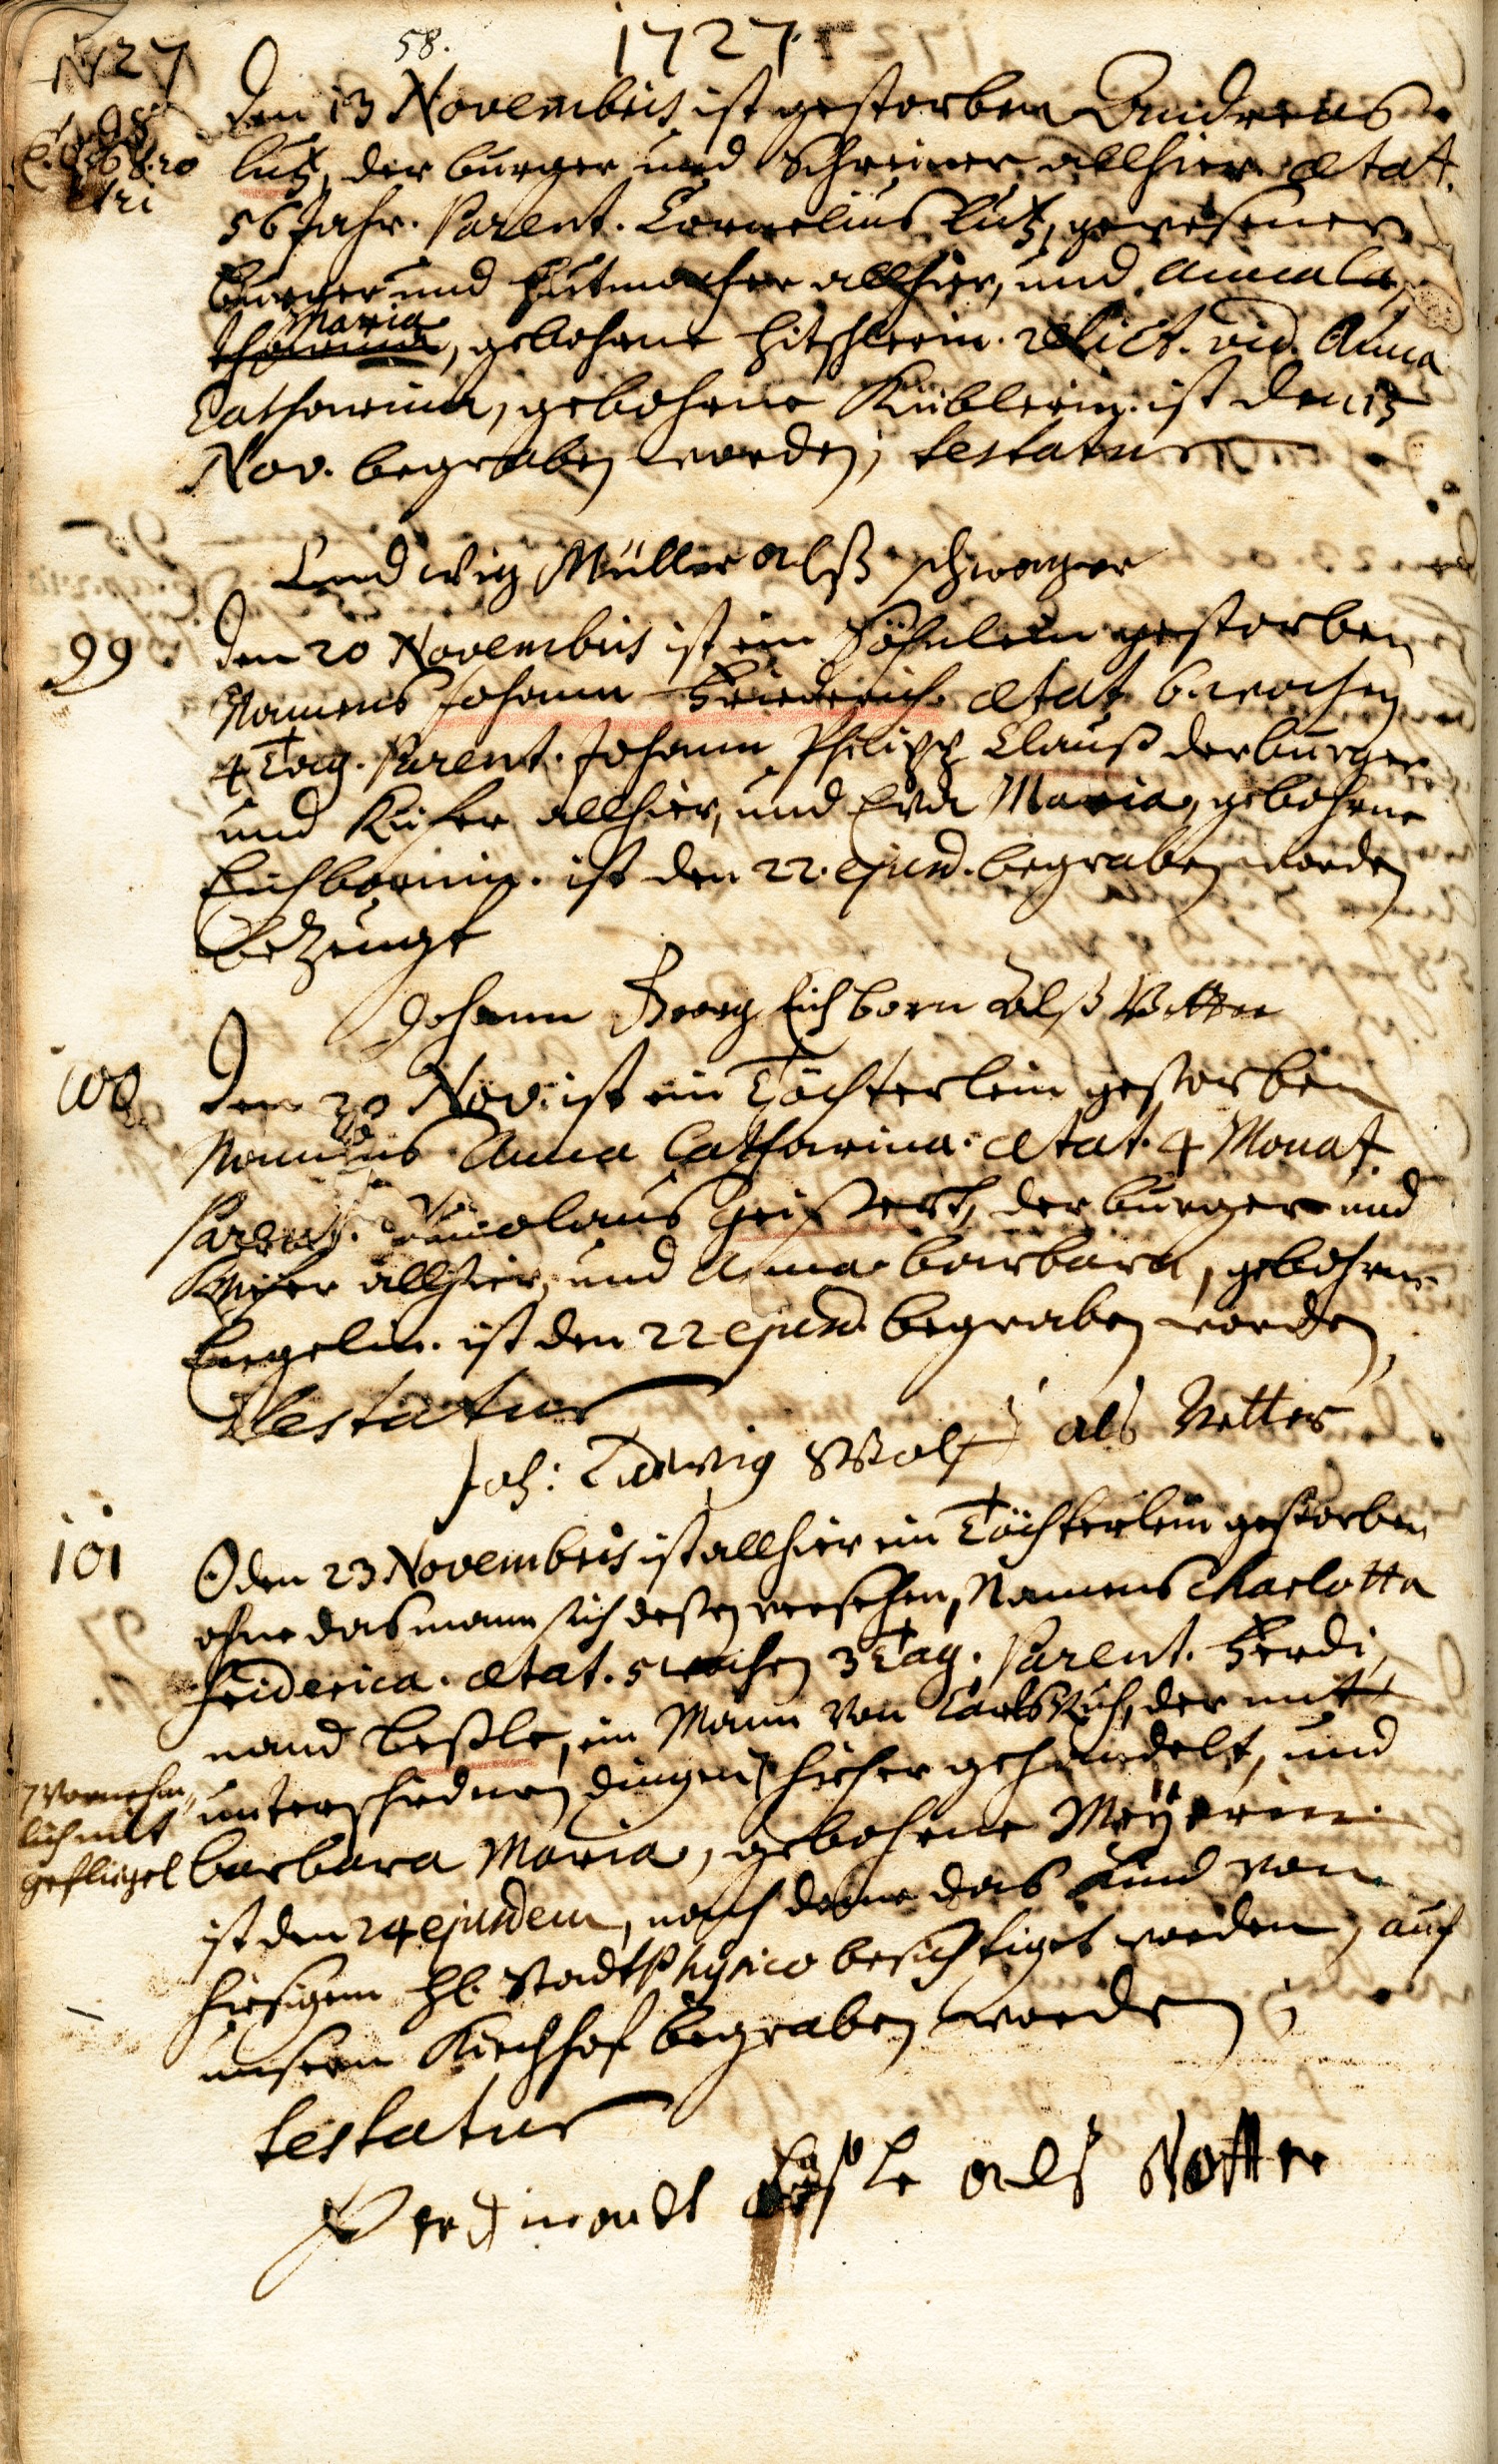 1727
58.
1727.
98
Den 13 Novembris ist gestorben Andreas
Lutz, der burger und Schreiner allhier. ætat.
56 Jahr. Parent. Cornelius Lutz, gewesener
Burger und Hutmacher allhier, und Anna Ca,
Maria
tharina, gebohrne Hitschlerin. relict. vid. Anna
Catharina, gebohrne Küblerin. ist den 15
Nov. begraben worden, testatur
Ludwig Müller alß schwager
99.
Den 20 Novembris ist ein Söhnlein gestorben
Namens Johann Friederich. ætat. 6. wochen
4 Tag. Parent. Johann Philipp Clauß der burger
und Küfer allhier, und Eva Maria, gebohrne
Eichbornin. ist den 22. ejusd. begraben worden
Bezeugt
Johann Georg Eichborn Alß Vetter
100
Den 20 Nov. ist ein Töchterlein gestorben
Namens Anna Catharina. ætat. 4 Monat.
Parent. Nicolaus Geistert, der burger und
Küfer allhier, und Anna barbara, gebohrne
Engelin. ist den 22 ejusd. begraben worden,
Testatur
Joh: Ludwig Wolf als Vetter
101
Den 23 Novembris ist allhier ein Töchterlein gestorben
ohne das mann sich deßen versehen, Namens Charlotta
Friderica. ætat. 5 wochen 3 Tag. Parent. Ferdi,
nand Beßle, ein Mann von CarlsRuh, der mit
unterschiednen dingen hieher gehandelt, und
vornehm,
lich mit
gefliegel
barbara Maria, gebohrne Meÿerin.
ist den 24 ejusdem, nach deme das Kind von
hiesigem H. StadtPhysico besichtiget worden, auf
unsern Kirchhof begraben worden;
testatur
Ferdinandt Beßle als Vatter